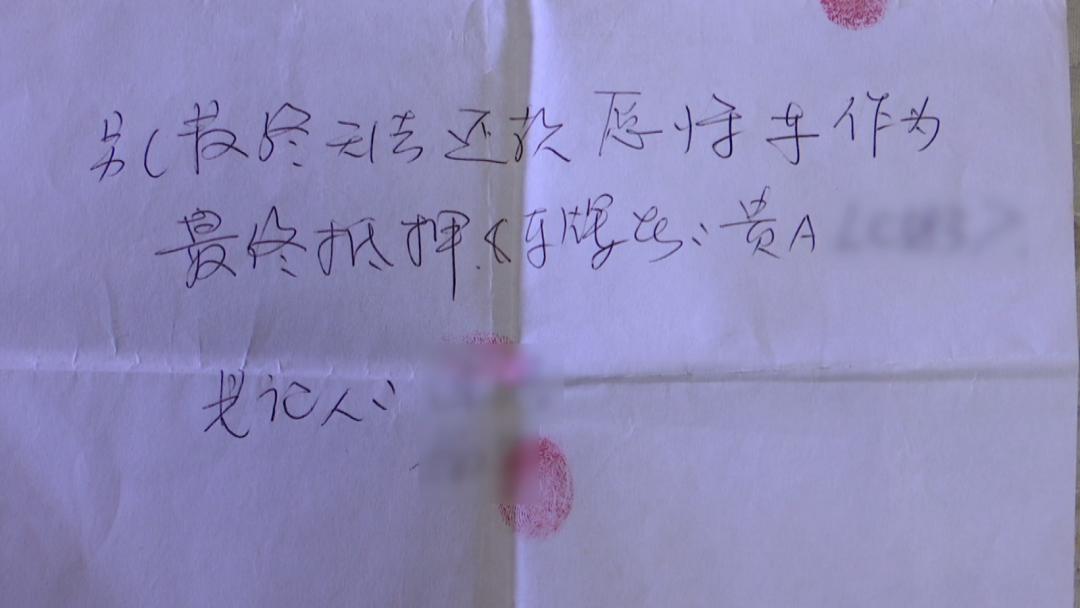 另(最终无法还款愿将车作为
最终抵押.(车牌号:贵A
见证人: